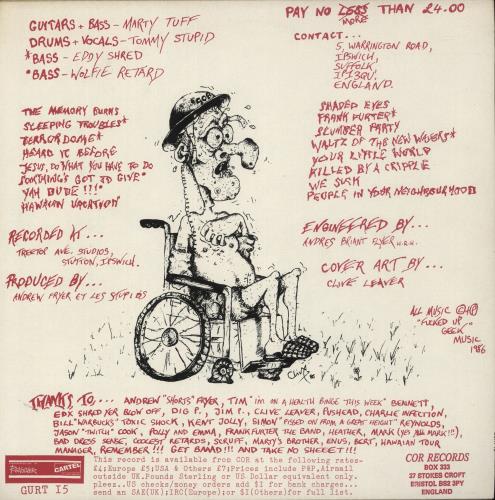 GUITARS + BASS - MARTY TUFF
DRUMS + VOCALS - TOMMY STUPID
*BASS - EDDY SHRED
•BASS - WOLFIE RETARD
PAY NO LESS THAN £4.00
MORE
CONTACT...
5, WARRINGTON ROAD,
IPSWICH,
SUFFOLK,
IP1 3QU.
ENGLAND.
THE MEMORY BURNS
SLEEPING TROUBLES*
TERRORDOME*
HEARD IT BEFORE
JESUS, DO WHAT YOU HAVE TO DO
SOMETHING'S GOT TO GIVE•
YAH DUDE!!!•
HAWAIIAN VACATION
SHADED EYES
FRANK FURTER*
SLUMBER PARTY
WALTZ OF THE NEW WAVERS*
YOUR LITTLE WORLD
KILLED BY A CRIPPLE
WE SUCK
PEOPLE IN YOUR NEIGHBOURHOOD
RECORDED AT...
TREETOP AVE. STUDIOS,
STUTTON, IPSWICH.
PRODUCED BY...
ANDREW FRYER ET LES STUPIDS
ENGINEERED BY...
ANDRES BRIANT FLYER H.R.H.
COVER ART BY...
CLIVE LEAVER
ALL MUSIC © ℗
"FUCKED UP
GEEK"
MUSIC
1986
THANKS TO... ANDREW "SHORTS" FRYER, TIM "I'M ON A HEALTH BINGE THIS WEEK" BENNETT,
EDX SHRED YER BLOW OFF, DIG P., JIM P., CLIVE LEAVER, PUSHEAD, CHARLIE INFECTION,
BILL "WARBUCKS" TOXIC SHOCK, KENT JOLLY, SIMON "PISSED ON FROM A GREAT HEIGHT" REYNOLDS,
JASON "TWITCH" COOK, POLLY AND EMMA, FRANKFURTER THE BAND, HEATHER, MARK (YES ME MARK!!!),
BAD DRESS SENSE, COOLEST RETARDS, SCRUFF, MARTY'S BROTHER, ENUS, BERT, HAWAIIAN TOUR
MANAGER, REMEMBER!!! GET BAAAD!!! AND TAKE NO SHEEET!!!
This record is available free from COR at the following rates-
£4;Europe £5;USA & Others £7;Prices include P&P,Airmail
outside UK.Pounds Sterling or US Dollar equivalent only.
pleez..US checks/money orders add $1 for bank charges..
send an SAE(UK);IRC(Europe);or $1(Others)for full list.
CARTEL
GURT 15
COR RECORDS
BOX 333
37 STOKES CROFT
BRISTOL BS2 3PY
ENGLAND